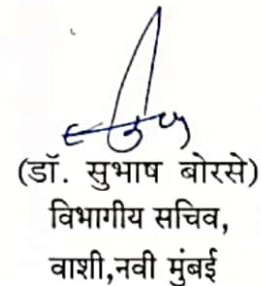 (डॉ. सुभाष बोरसे)
विभागीय सचिव,
वाशी,नवी मुंबई